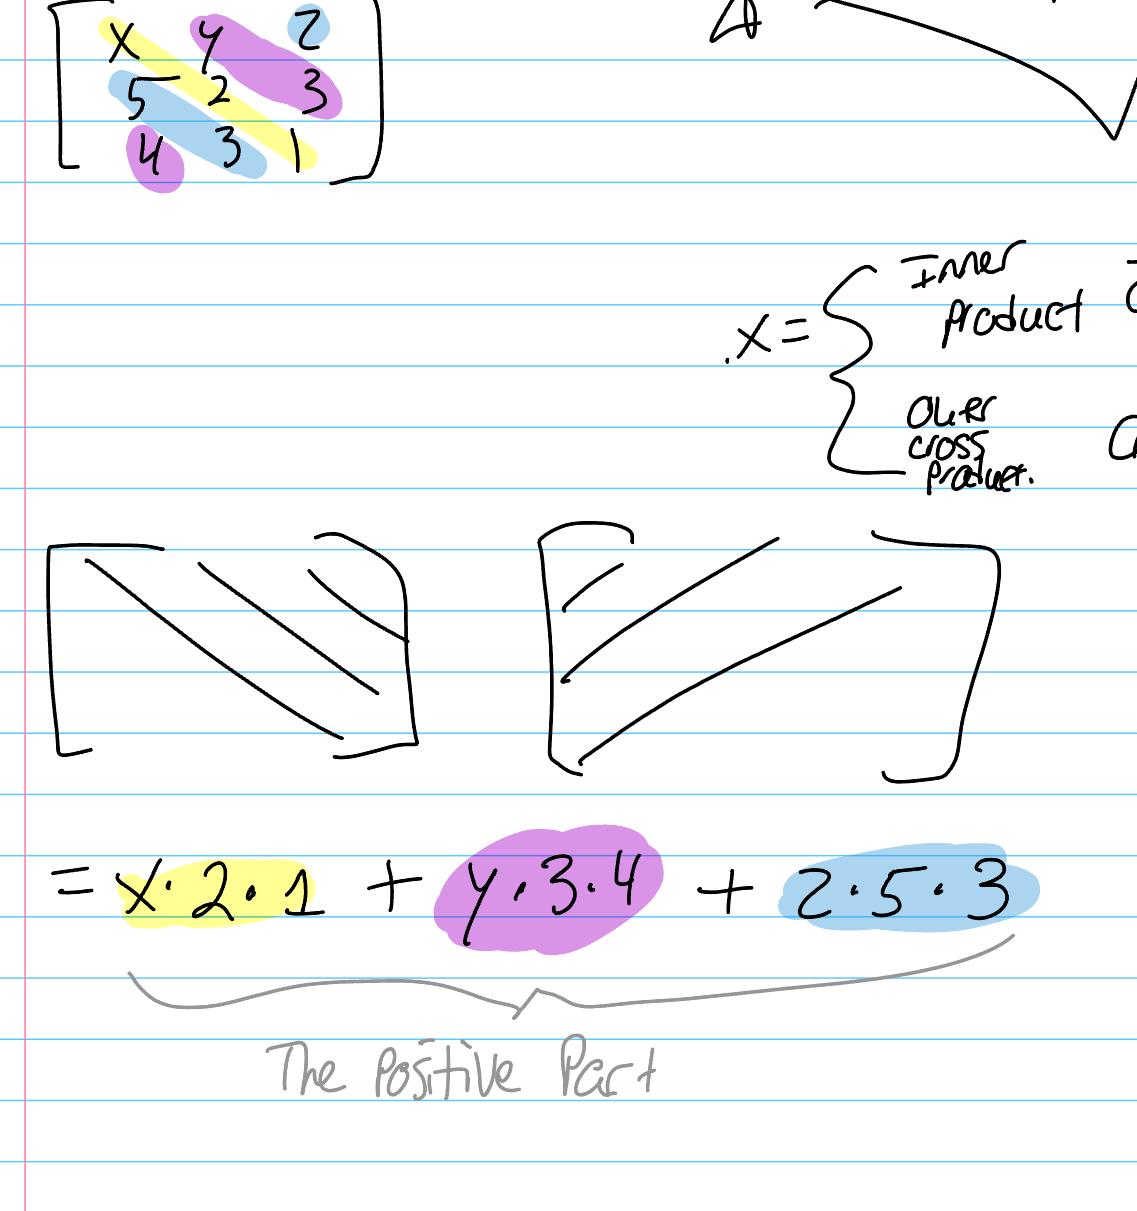 x y z
5 2 3
4 3 1
.x =
Inner
product
outer
cross
product.
= x·2·1 + y·3·4 + z·5·3
The Positive Part